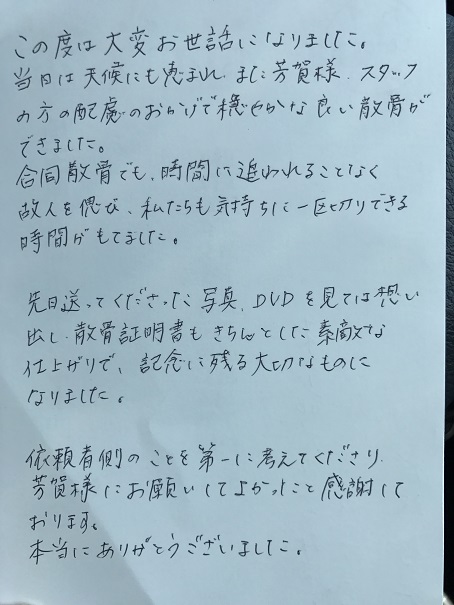 この度は大変お世話になりました。
当日は天候にも恵まれ、また芳賀様、スタッフ
の方の配慮のおかげで穏やかな良い散骨が
できました。
合同散骨でも、時間に追われることなく
故人を偲び、私たちも気持ちに一区切りできる
時間がもてました。
先日送ってくださった写真、DVDを見ては想い
出し、散骨証明書もきちんとした素敵な
仕上がりで、記念に残る大切なものに
なりました。
依頼者側のことを第一に考えてくださり、
芳賀様にお願いしてよかったこと感謝して
おります。
本当にありがとうございました。